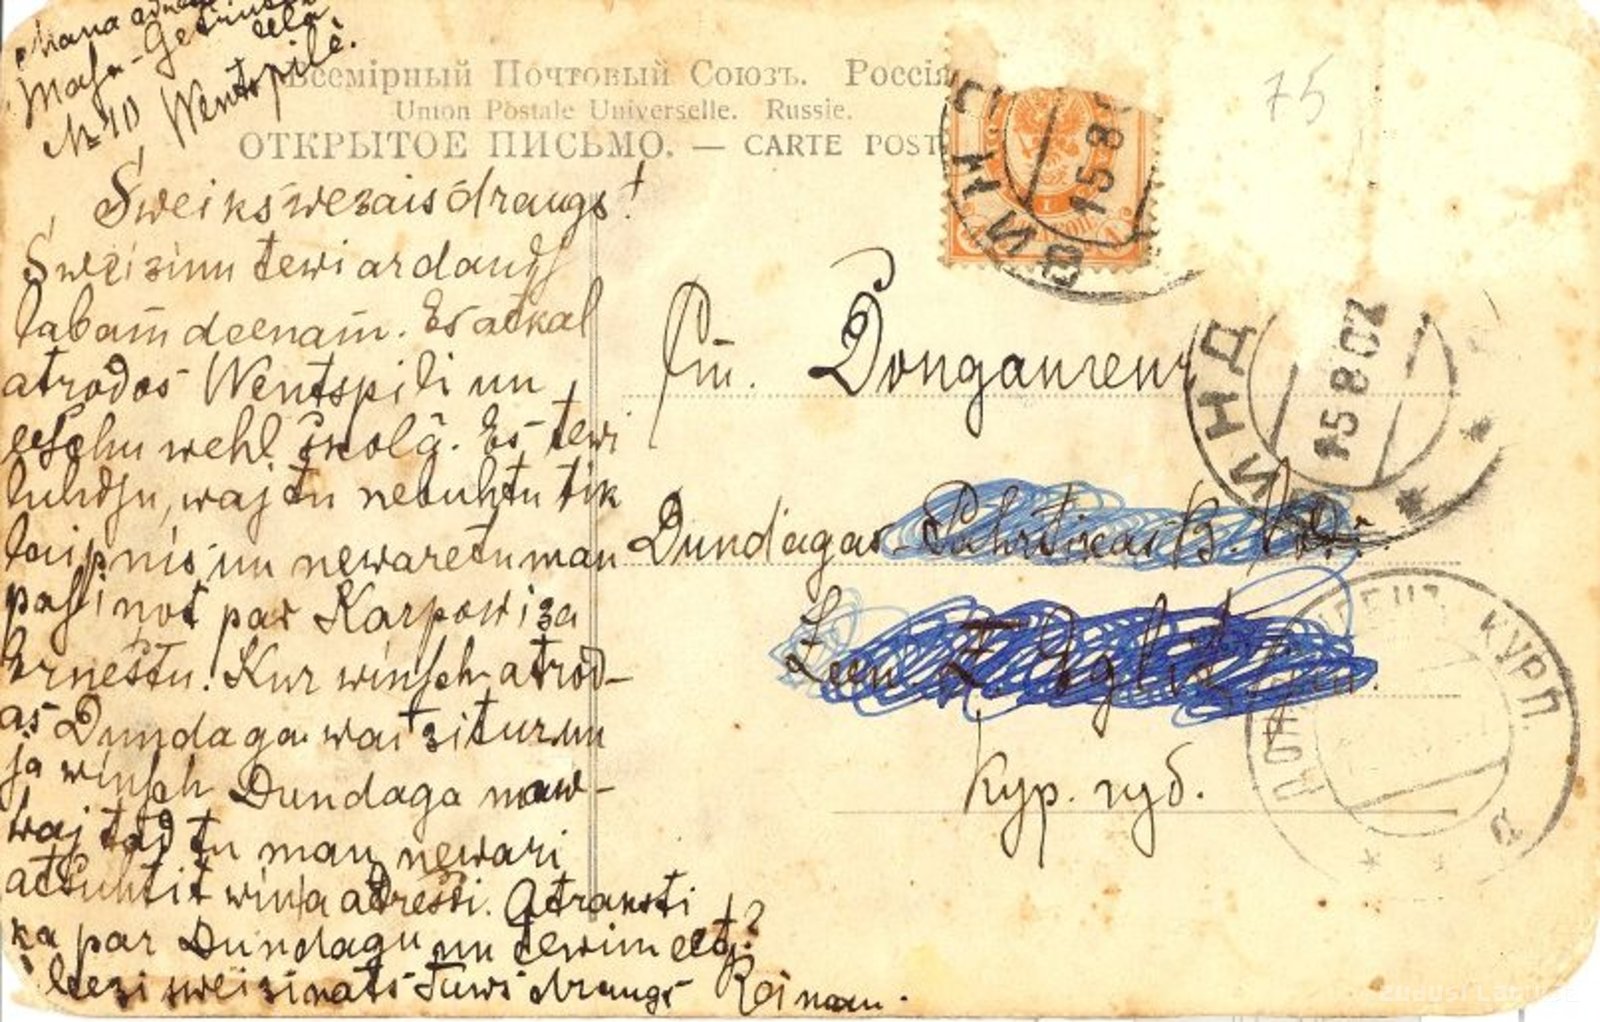 Mana adrese
Masa-Getrudes
eelā
№ 40 Wentspilē.
Всемірный Почтовый Союзъ. Россія
Union Postale Universelle. Russie.
ОТКРЫТОЕ ПИСЬМО. — CARTE POST
75
Sweiks wezais draugs!
Sweizinu tewi ar daudz
labam deenam. Es atkal
atrodos Wentspili un
eeschu wehl skolā. Es tewi
luhdsu, waj tu nebuhtu tik
laipnis un newaretu man
pasinot par Karpowiza
Ernestu. Kur winsch atrod-
as Dundaga wai zitur un
ja winsch Dundaga naw
waj tad tu man newari
atsuhtit wina adresi. Atraksti
ka par Dundagu un tewim eet?
Leezi sweizinats Tuws draugs Reinau.
Ст. Донданген
Dundagas
Leen
Кур. губ.
ВИНД
15 8
ВИНД
15 8 07
КУРЛ.